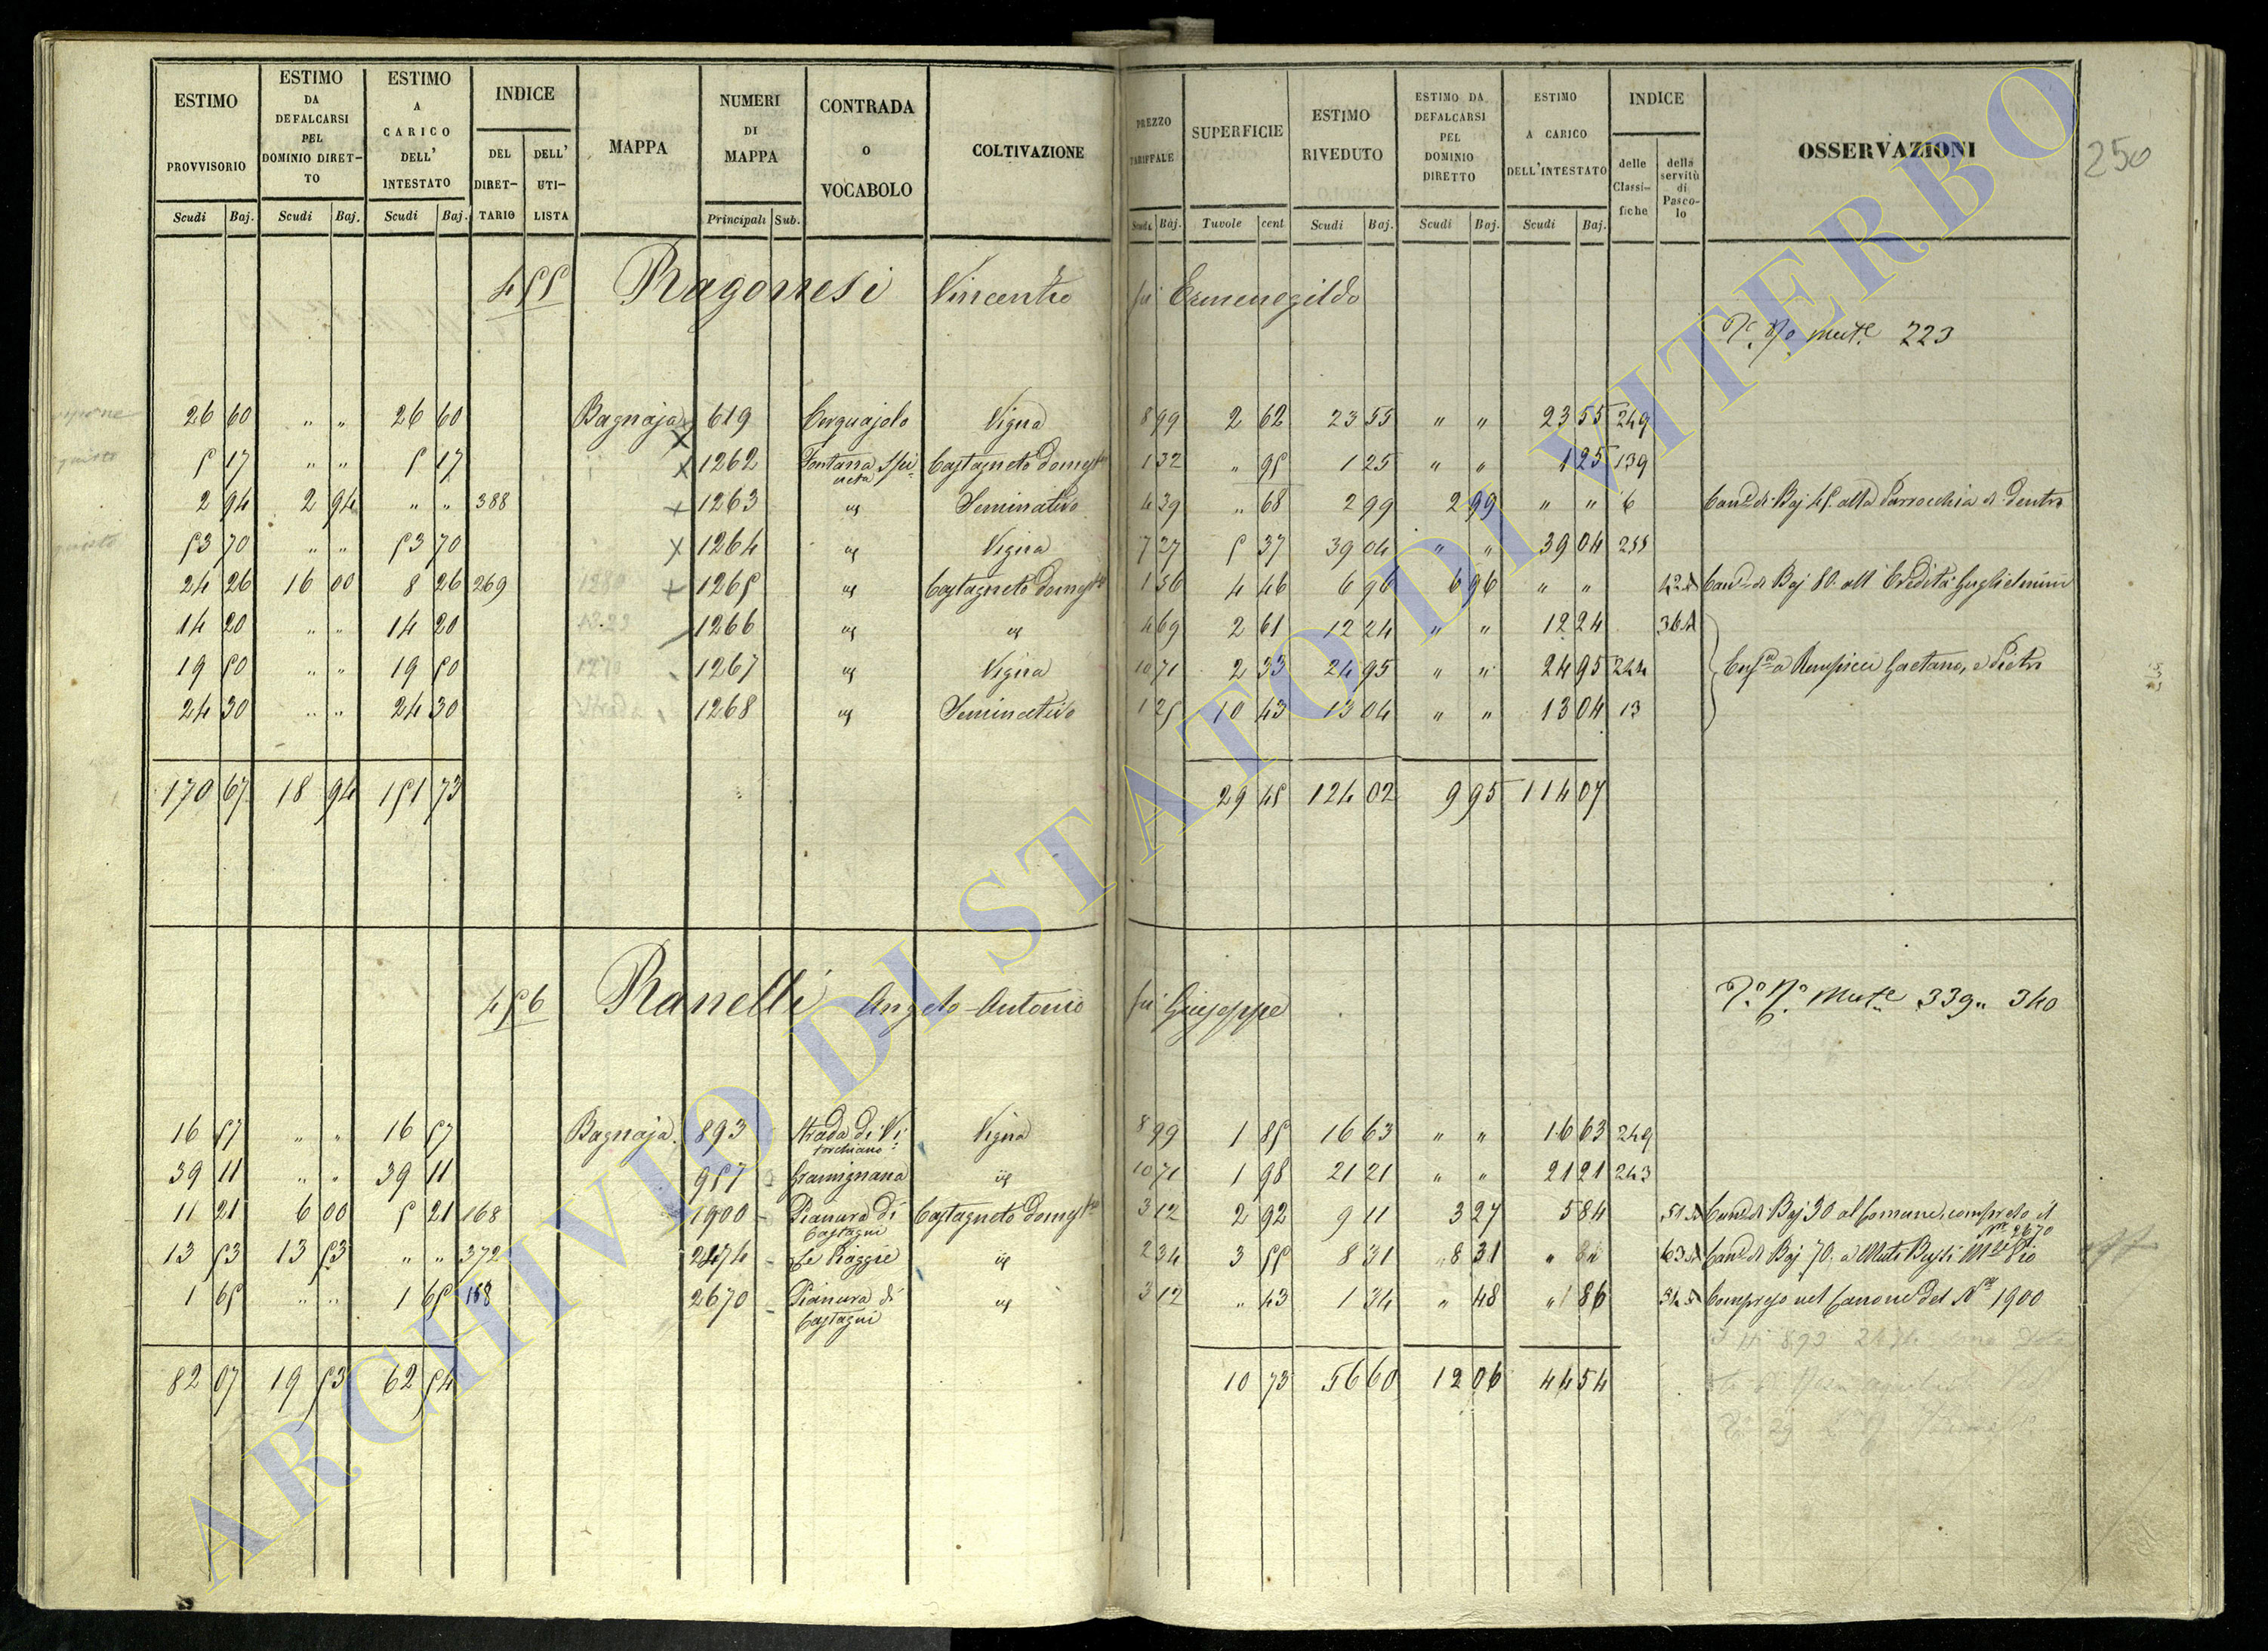 ESTIMO PROVVISORIO Scudi Baj.
ESTIMO DA DEFALCARSI PEL DOMINIO DIRET-TO Scudi Baj.
ESTIMO A CARICO DELL' INTESTATO Scudi Baj.
INDICE DEL DIRET-TARIO DELL' UTI-LISTA
MAPPA
NUMERI DI MAPPA Principali Sub.
CONTRADA O VOCABOLO
COLTIVAZIONE
PREZZO TARIFFALE Scudi Baj.
SUPERFICIE Tavole cent
ESTIMO RIVEDUTO Scudi Baj.
ESTIMO DA DEFALCARSI PEL DOMINIO DIRETTO Scudi Baj.
ESTIMO A CARICO DELL'INTESTATO Scudi Baj.
INDICE delle Classi-fiche della servitù di Pasco-lo
OSSERVAZIONI
250
455 Ragonesi Vincenzo fu Ermenegildo
mut.e 223
26 60 " " 26 60 Bagnaja 619 Cerquajolo Vigna 8 99 2 62 23 55 " " 23 55 249
5 17 " " 5 17 1262 Fontana Castagneto domest.o 1 32 " 95 1 25 " " 1 25 139
2 94 2 94 " " 388 1263 id Seminativo 4 39 " 68 2 99 2 99 " " 6 Can.e di Baj 45. alla Parrocchia di Dentro
53 70 " " 53 70 1264 id Vigna 7 27 5 37 39 04 " " 39 04 255
24 26 16 00 8 26 269 1265 id Castagneto domest.o 1 56 4 46 6 96 6 96 " " Can.e di Baj 80. all' Eredità Guglielmini
14 20 " " 14 20 1266 id id 4 69 2 61 12 24 " " 12 24 36
19 50 " " 19 50 1267 id Vigna 10 71 2 33 24 95 " " 24 95 244 Gaetano, e Pietro
24 30 " " 24 30 1268 id Seminativo 1 25 10 43 13 04 " " 13 04 13
170 67 18 94 151 73 29 45 124 02 9 95 114 07
456 Ranelli Angelo Antonio fu Giuseppe
mut.e 339 " 340
16 57 " " 16 57 Bagnaja 893 Strada di Vitorchiano Vigna 8 99 1 85 16 63 " " 16 63 249
39 11 " " 39 11 957 Gramignana id 10 71 1 98 21 21 " " 21 21 243
11 21 6 00 5 21 168 1900 Pianura di Castagni Castagneto domest.o 3 12 2 92 9 11 3 27 5 84 Can.e di Baj 30 al Comune, compreso il
N.o 2670
13 53 13 53 " " 372 2474 Le Piagge id 2 34 3 55 8 31 8 31 " " 63 Can.e di Baj 70. a Muti Bussi M.se Pio
1 65 " " 1 65 168 2670 Pianura di Castagni id 3 12 " 43 1 34 " 48 " 86 Compreso nel Canone del N.o 1900
82 07 19 53 62 54 10 73 56 60 12 06 44 54
ARCHIVIO DI STATO DI VITERBO